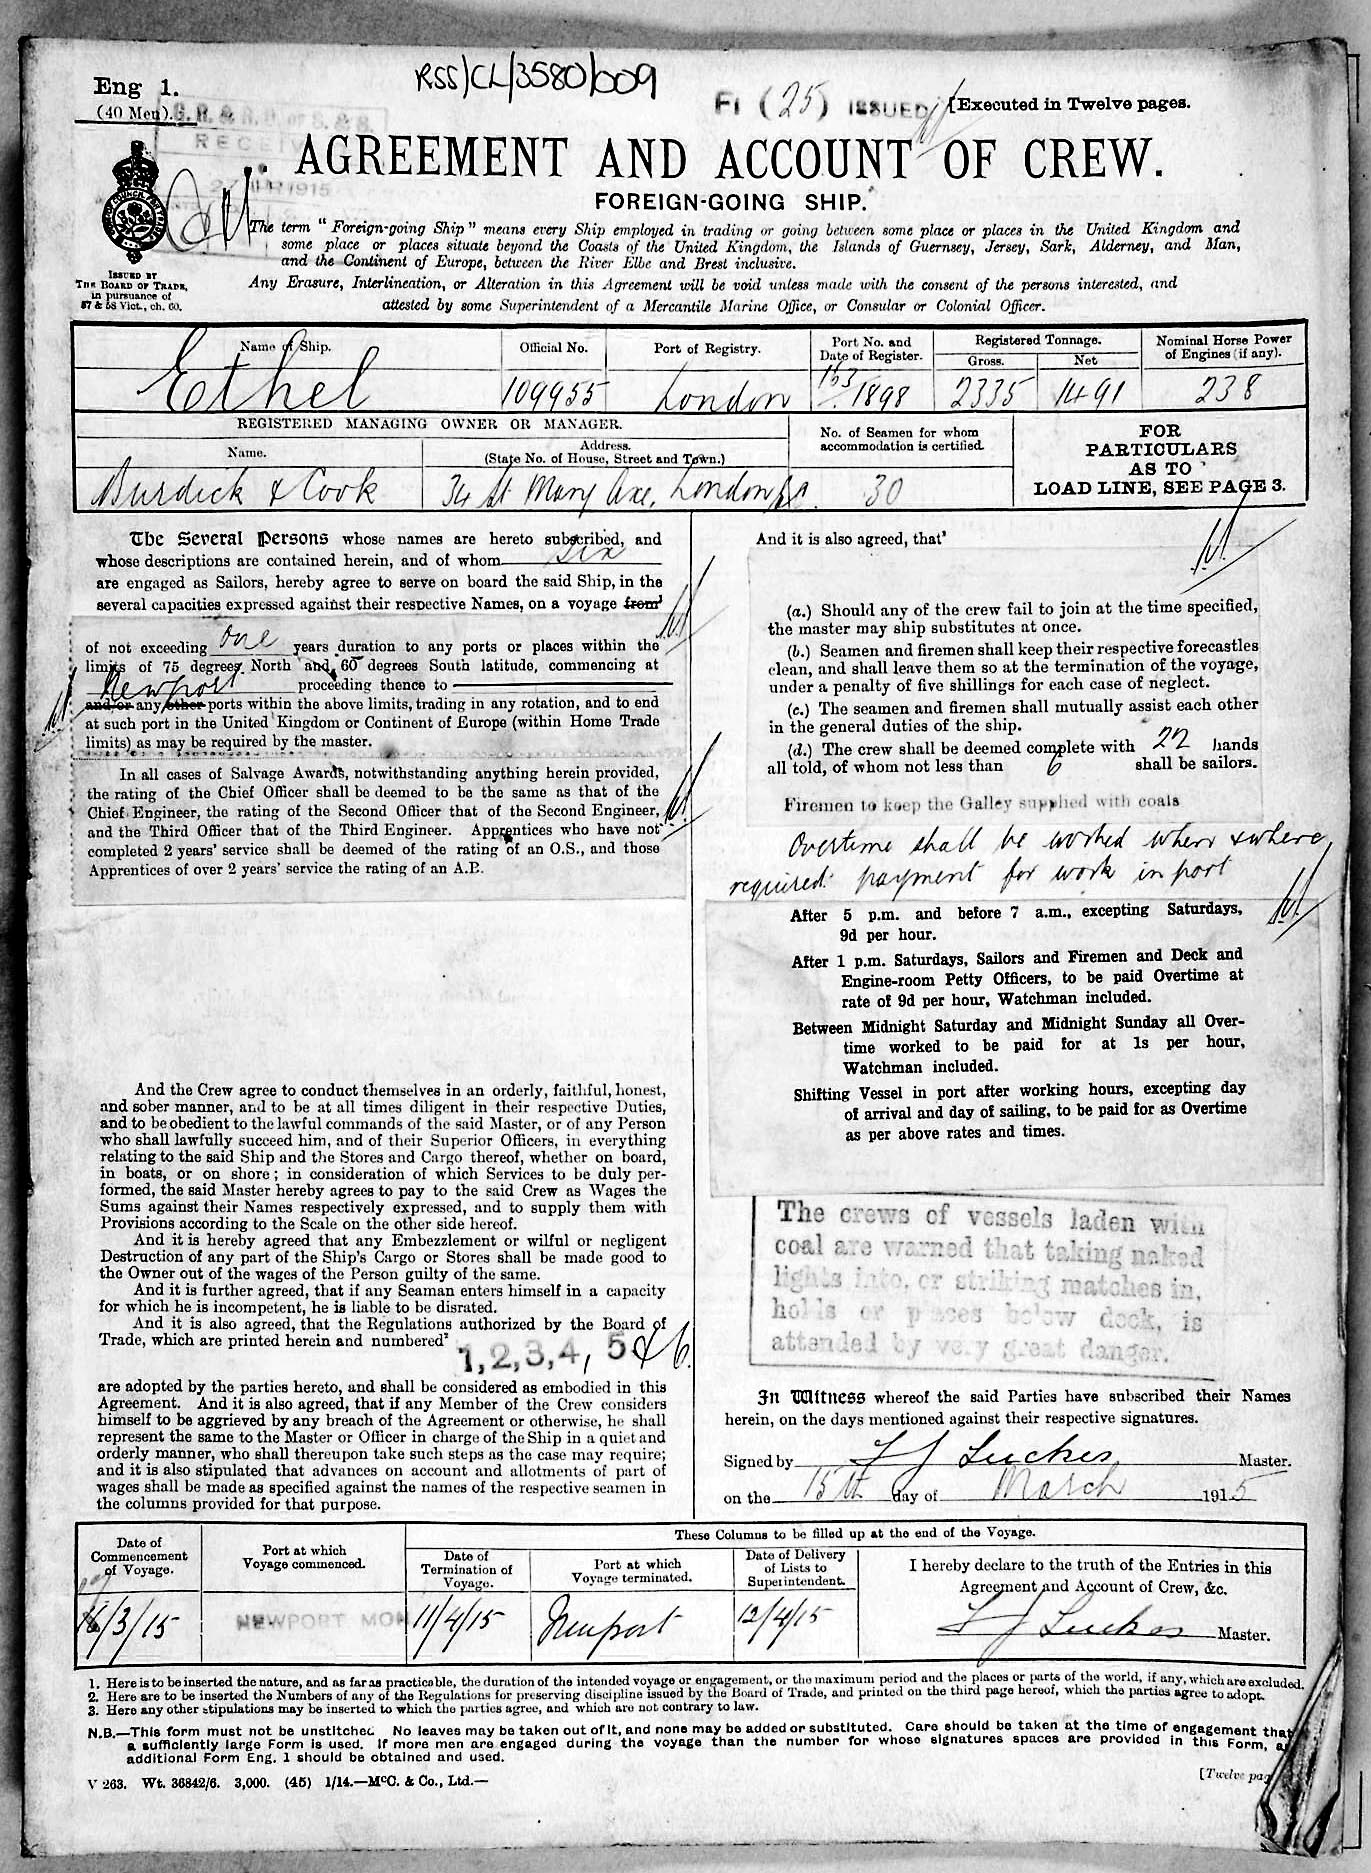 Eng 1.
(40 Men).
RSS/CL/3580/009
FI (25) ISSUED
[Executed in Twelve pages.
RECEIV
1915
AGREEMENT AND ACCOUNT OF CREW.
FOREIGN-GOING SHIP.
The term "Foreign-going Ship" means every Ship employed in trading or going between some place or places in the United Kingdom and
some place or places situate beyond the Coasts of the United Kingdom, the Islands of Guernsey, Jersey, Sark, Alderney, and Man,
and the Continent of Europe, between the River Elbe and Brest inclusive.
Any Erasure, Interlineation, or Alteration in this Agreement will be void unless made with the consent of the persons interested, and
attested by some Superintendent of a Mercantile Marine Office, or Consular or Colonial Officer.
ISSUED BY
THE BOARD OF TRADE,
in pursuance of
57 & 58 Vict., ch. 60.
Name of Ship.
Official No.
Port of Registry.
Port No. and
Date of Register.
Registered Tonnage.
Gross.
Net
Nominal Horse Power
of Engines (if any).
Ethel
109955
London
153/1898
2335
1491
238
REGISTERED MANAGING OWNER OR MANAGER.
Name.
Address.
(State No. of House, Street and Town.)
No. of Seamen for whom
accommodation is certified.
FOR
PARTICULARS
AS TO
LOAD LINE, SEE PAGE 3.
Burdick & Cook
34 St Mary Axe, London
30
The Several Persons whose names are hereto subscribed, and
whose descriptions are contained herein, and of whom six
are engaged as Sailors, hereby agree to serve on board the said Ship, in the
several capacities expressed against their respective Names, on a voyage from¹
of not exceeding one years duration to any ports or places within the
limits of 75 degrees North and 60 degrees South latitude, commencing at
Newport proceeding thence to
and/or any other ports within the above limits, trading in any rotation, and to end
at such port in the United Kingdom or Continent of Europe (within Home Trade
limits) as may be required by the master.
In all cases of Salvage Awards, notwithstanding anything herein provided,
the rating of the Chief Officer shall be deemed to be the same as that of the
Chief Engineer, the rating of the Second Officer that of the Second Engineer,
and the Third Officer that of the Third Engineer. Apprentices who have not
completed 2 years' service shall be deemed of the rating of an O.S., and those
Apprentices of over 2 years' service the rating of an A.B.
And the Crew agree to conduct themselves in an orderly, faithful, honest,
and sober manner, and to be at all times diligent in their respective Duties,
and to be obedient to the lawful commands of the said Master, or of any Person
who shall lawfully succeed him, and of their Superior Officers, in everything
relating to the said Ship and the Stores and Cargo thereof, whether on board,
in boats, or on shore; in consideration of which Services to be duly per-
formed, the said Master hereby agrees to pay to the said Crew as Wages the
Sums against their Names respectively expressed, and to supply them with
Provisions according to the Scale on the other side hereof.
And it is hereby agreed that any Embezzlement or wilful or negligent
Destruction of any part of the Ship's Cargo or Stores shall be made good to
the Owner out of the wages of the Person guilty of the same.
And it is further agreed, that if any Seaman enters himself in a capacity
for which he is incompetent, he is liable to be disrated.
And it is also agreed, that the Regulations authorized by the Board of
Trade, which are printed herein and numbered²
1, 2, 3, 4, 5 & 6.
are adopted by the parties hereto, and shall be considered as embodied in this
Agreement. And it is also agreed, that if any Member of the Crew considers
himself to be aggrieved by any breach of the Agreement or otherwise, he shall
represent the same to the Master or Officer in charge of the Ship in a quiet and
orderly manner, who shall thereupon take such steps as the case may require;
and it is also stipulated that advances on account and allotments of part of
wages shall be made as specified against the names of the respective seamen in
the columns provided for that purpose.
And it is also agreed, that³
(a.) Should any of the crew fail to join at the time specified,
the master may ship substitutes at once.
(b.) Seamen and firemen shall keep their respective forecastles
clean, and shall leave them so at the termination of the voyage,
under a penalty of five shillings for each case of neglect.
(c.) The seamen and firemen shall mutually assist each other
in the general duties of the ship.
(d.) The crew shall be deemed complete with 22 hands
all told, of whom not less than 6 shall be sailors.
Firemen to keep the Galley supplied with coals
Overtime shall be worked when & where
required: payment for work in port
After 5 p.m. and before 7 a.m., excepting Saturdays,
9d per hour.
After 1 p.m. Saturdays, Sailors and Firemen and Deck and
Engine-room Petty Officers, to be paid Overtime at
rate of 9d per hour, Watchman included.
Between Midnight Saturday and Midnight Sunday all Over-
time worked to be paid for at 1s per hour,
Watchman included.
Shifting Vessel in port after working hours, excepting day
of arrival and day of sailing, to be paid for as Overtime
as per above rates and times.
The crews of vessels laden with
coal are warned that taking naked
lights into, or striking matches in,
holds or places below deck, is
attended by very great danger.
In Witness whereof the said Parties have subscribed their Names
herein, on the days mentioned against their respective signatures.
Signed by F J Luckes Master.
on the 15th day of March 1915
Date of
Commencement
of Voyage.
Port at which
Voyage commenced.
These Columns to be filled up at the end of the Voyage.
Date of
Termination of
Voyage.
Port at which
Voyage terminated.
Date of Delivery
of Lists to
Superintendent.
I hereby declare to the truth of the Entries in this
Agreement and Account of Crew, &c.
16/3/15
NEWPORT MON
11/4/15
Newport
12/4/15
F J Luckes Master.
1. Here is to be inserted the nature, and as far as practicable, the duration of the intended voyage or engagement, or the maximum period and the places or parts of the world, if any, which are excluded.
2. Here are to be inserted the Numbers of any of the Regulations for preserving discipline issued by the Board of Trade, and printed on the third page hereof, which the parties agree to adopt.
3. Here any other stipulations may be inserted to which the parties agree, and which are not contrary to law.
N.B.—This form must not be unstitched. No leaves may be taken out of it, and none may be added or substituted. Care should be taken at the time of engagement that
a sufficiently large Form is used. If more men are engaged during the voyage than the number for whose signatures spaces are provided in this Form, a
additional Form Eng. 1 should be obtained and used.
V 263. Wt. 36842/6. 3,000. (45) 1/14.—McC. & Co., Ltd.—
[Twelve pag